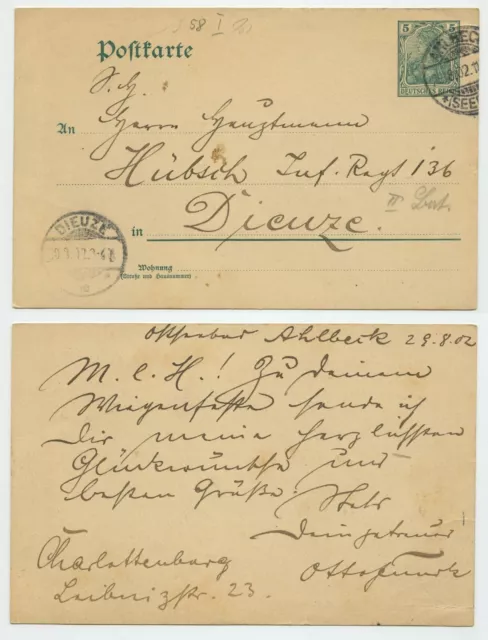 58 I
Postkarte
5 5
DEUTSCHES REICH
S. H.
An Herrn Hauptmann
Hübsch Inf. Regt 136
III Bat.
in Dieuze.
DIEUZE
Wohnung
(Straße und Hausnummer)
(SEEB
Ostseebad Ahlbeck 29.8.02
M. l. H.! Zu Deinem
Wiegenfeste sende ich
Dir meine herzlichsten
Glückwünsche und
besten Grüße. Stets
Dein getreuer
Charlottenburg Otto
Leibnizstr. 23.